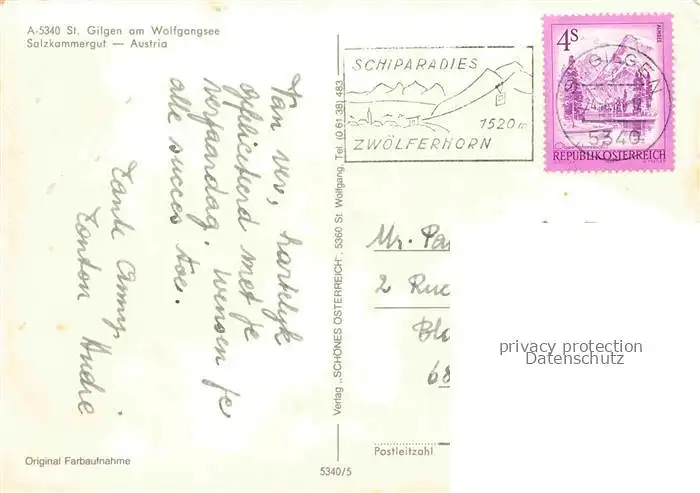 A-5340 St. Gilgen am Wolfgangsee
Salzkammergut — Austria
Van ver, hartelyk
gefeliciteerd met je
verjaardag. Wensen je
alle succes toe.
Tante Anny
Tonton André
Original Farbaufnahme
Verlag „SCHÖNES ÖSTERREICH", 5360 St. Wolfgang, Tel. (0 61 38) 483
5340/5
SCHIPARADIES
1520 m
ZWÖLFERHORN
4S
ALMSEE
REPUBLIK ÖSTERREICH
ST. GILGEN
5340
Mr. Pa
2 Ru
Blo
68
Postleitzahl
privacy protection
Datenschutz